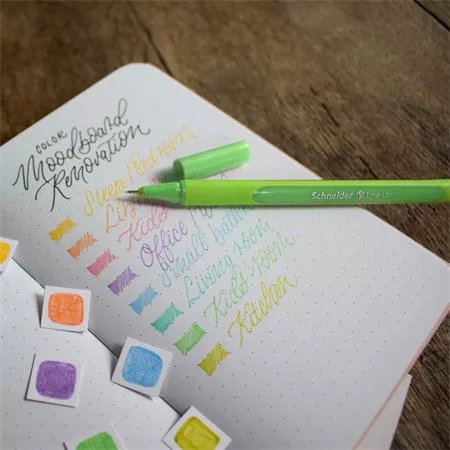 COLOR
Moodboard
Renovation
Sleep/bedroom
Kids
Office /
Small
Living room
Kids room
Kitchen
Schneider Line-Up